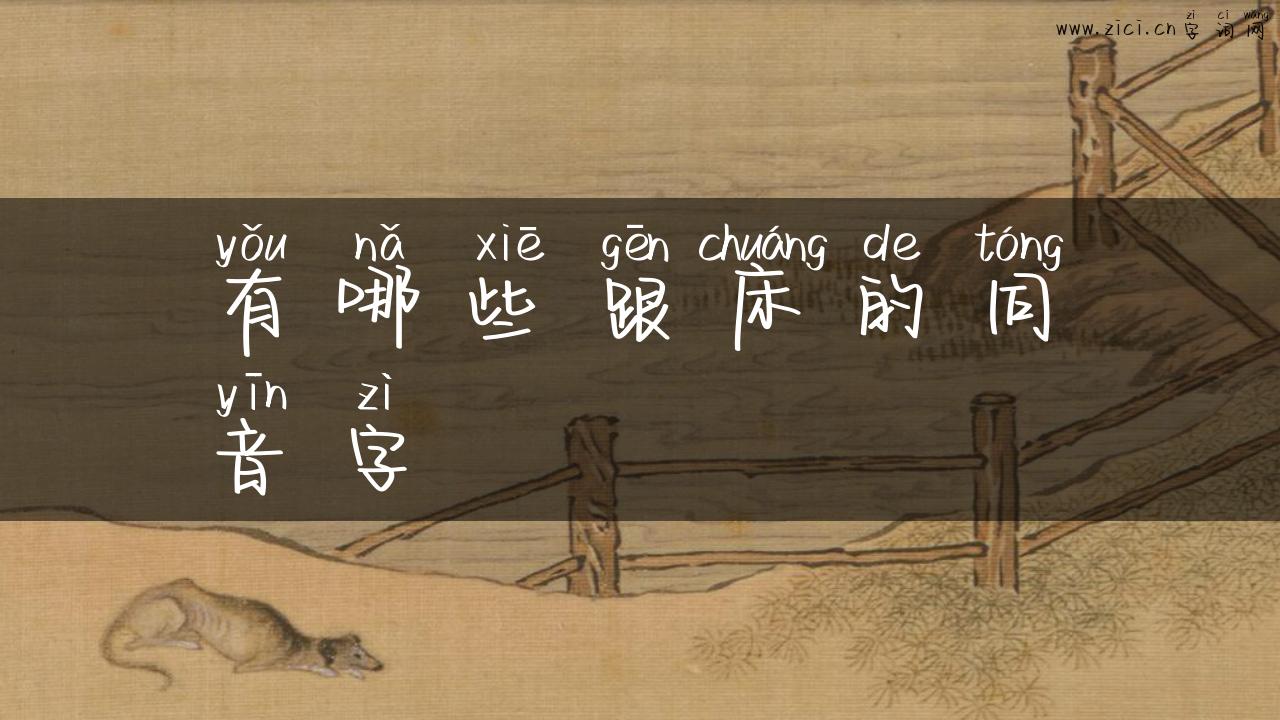 zi ci wang
www.zici.cn 字词网
yǒu nǎ xiē gēn chuáng de tóng
有哪些跟床的同
yīn zì
音字